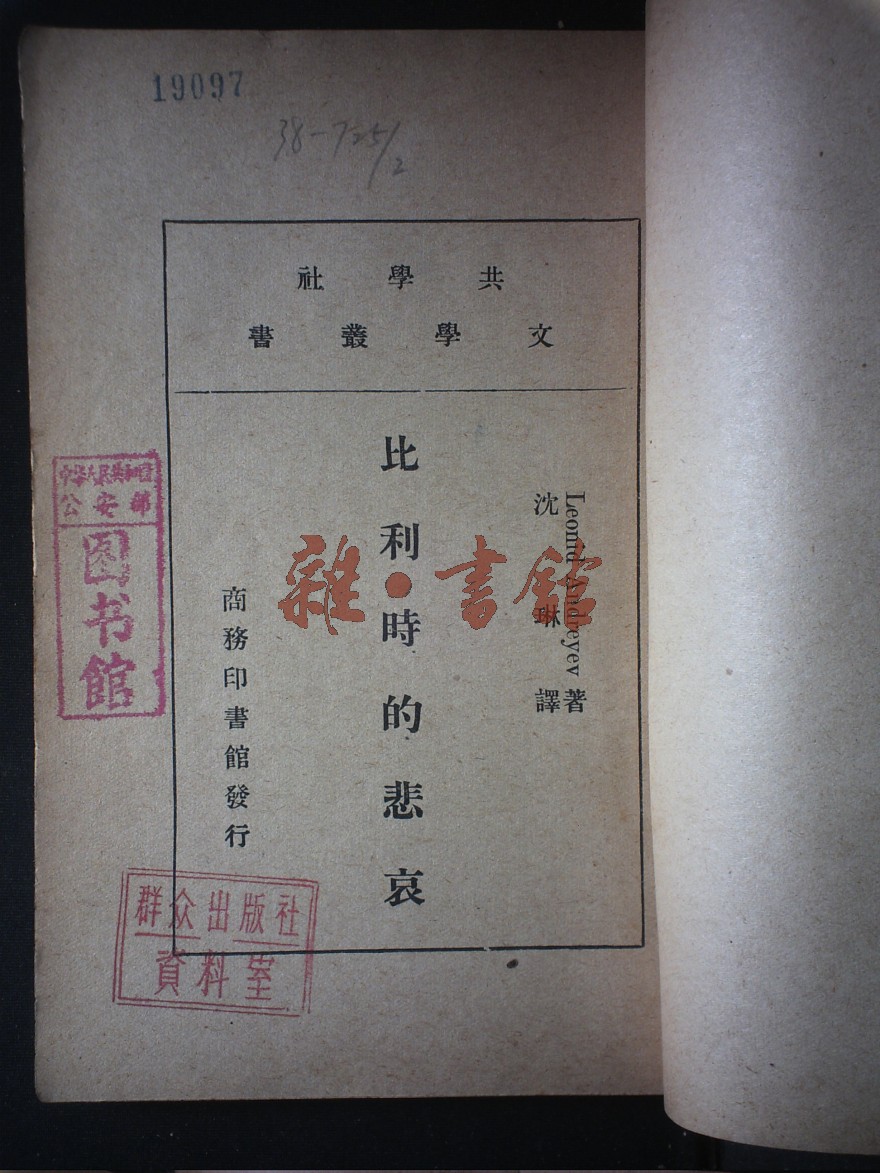 19097
38-725/2
共學社
文學叢書
Leonid Andreyev 著
沈琳譯
比利時的悲哀
商務印書館發行
雜·書館
中华人民共和国
公安部
图书馆
群众出版社
資料室